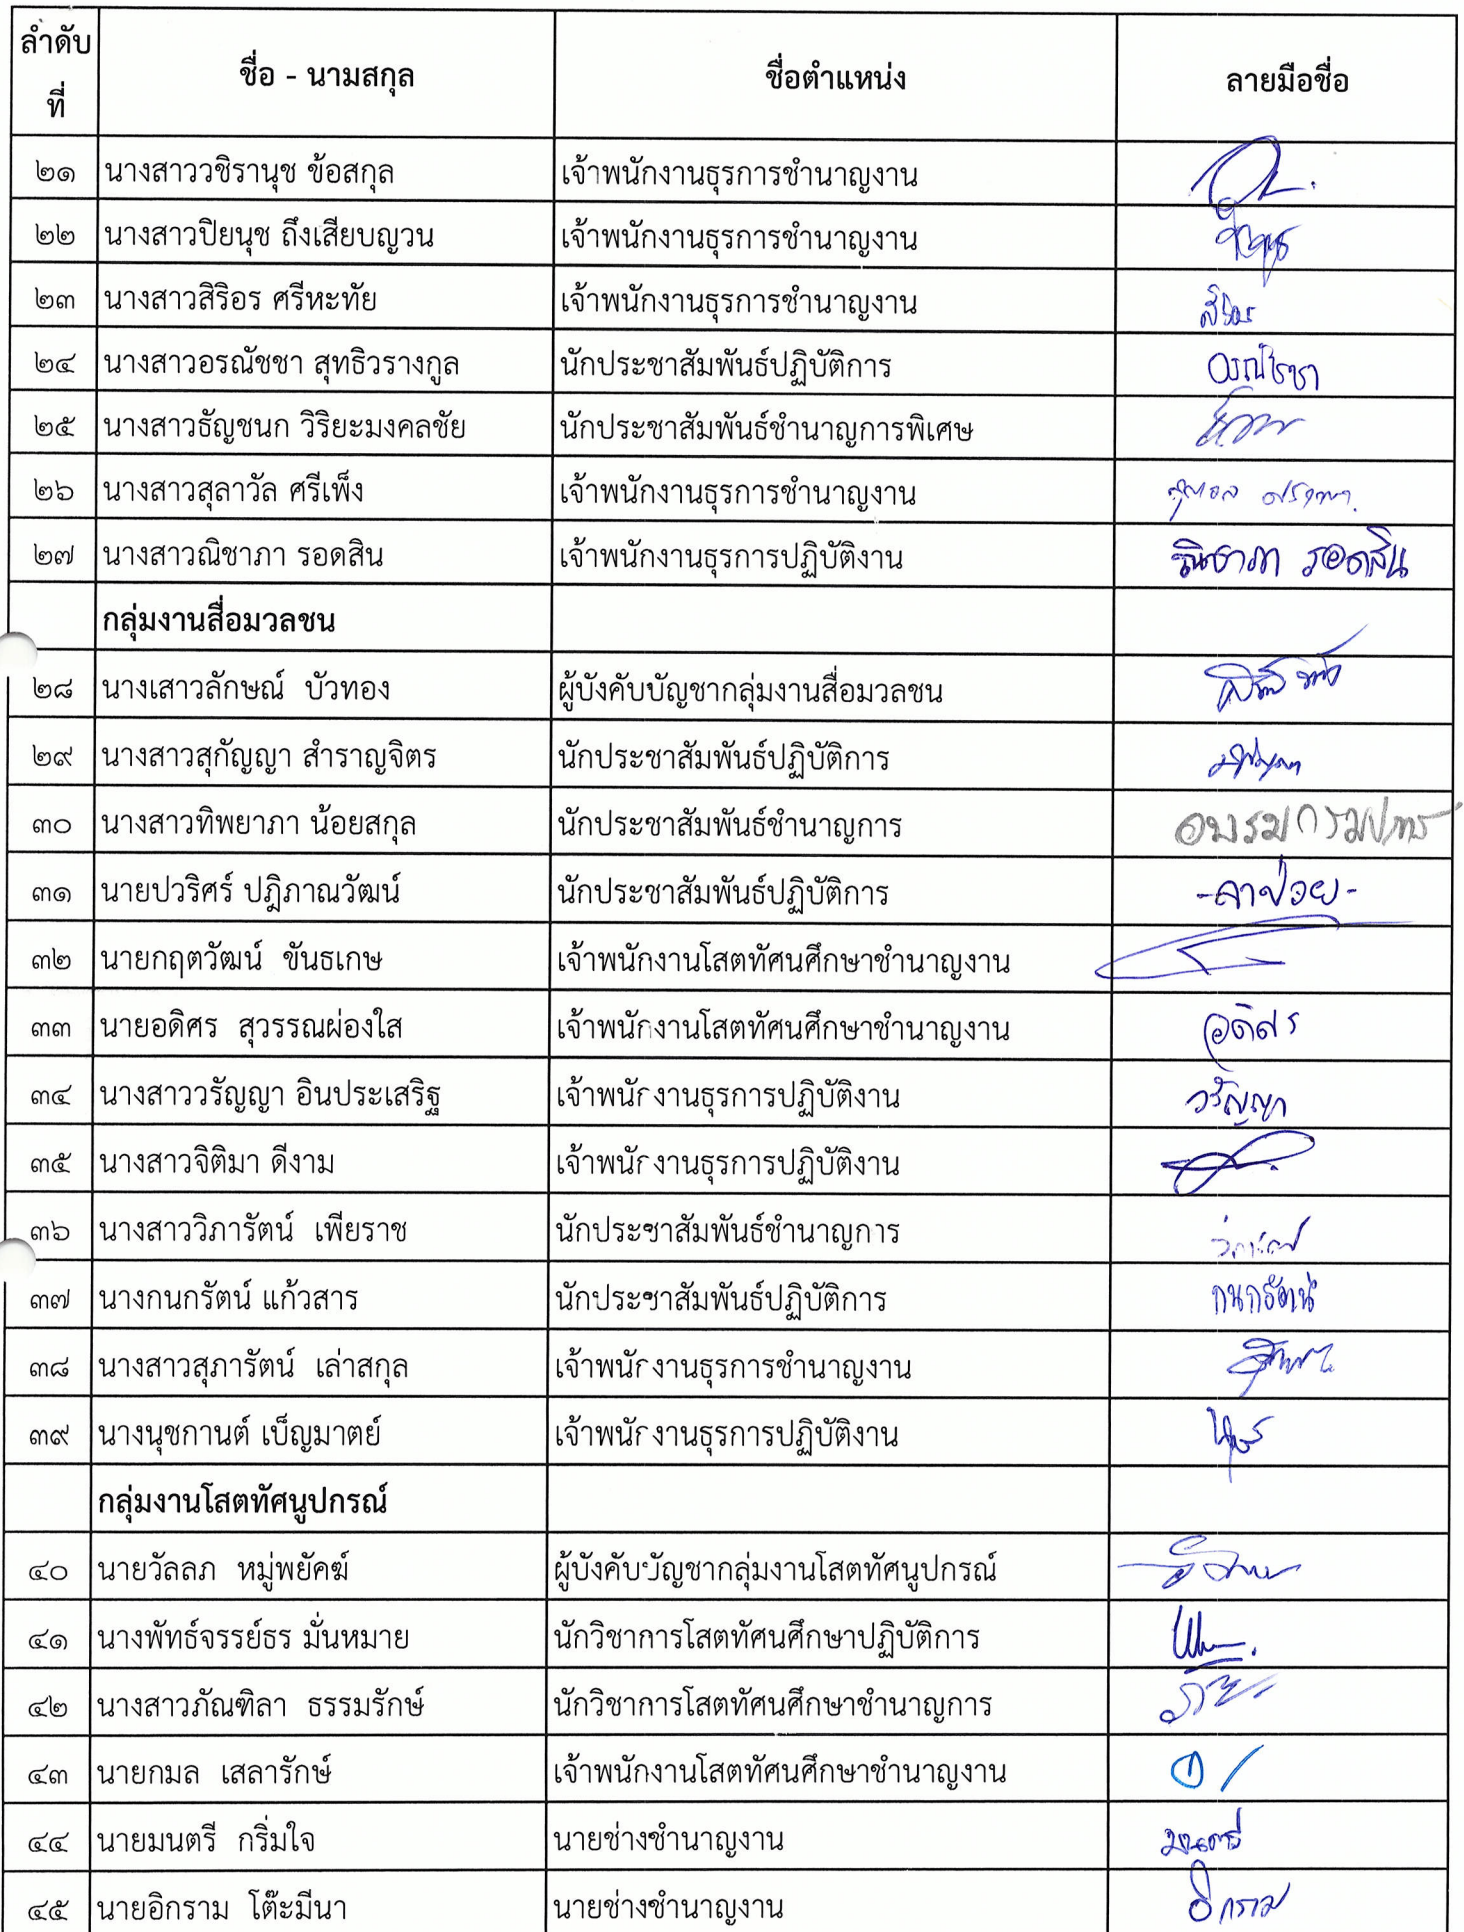 ลำดับ
ที่
ชื่อ - นามสกุล ชื่อตำแหน่ง ลายมือชื่อ
๒๑ นางสาววชิรานุช ข้อสกุล เจ้าพนักงานธุรการชำนาญงาน
๒๒ นางสาวปิยนุช ถึงเสียบญวน เจ้าพนักงานธุรการชำนาญงาน
๒๓ นางสาวสิริอร ศรีหะทัย เจ้าพนักงานธุรการชำนาญงาน
๒๔ นางสาวอรณัชชา สุทธิวรางกูล นักประชาสัมพันธ์ปฏิบัติการ
๒๕ นางสาวธัญชนก วิริยะมงคลชัย นักประชาสัมพันธ์ชำนาญการพิเศษ
๒๖ นางสาวสุลาวัล ศรีเพ็ง เจ้าพนักงานธุรการชำนาญงาน
๒๗ นางสาวณิชาภา รอดสิน เจ้าพนักงานธุรการปฏิบัติงาน ณิชาภา รอดสิน
กลุ่มงานสื่อมวลชน
๒๘ นางเสาวลักษณ์ บัวทอง ผู้บังคับบัญชากลุ่มงานสื่อมวลชน
๒๙ นางสาวสุกัญญา สำราญจิตร นักประชาสัมพันธ์ปฏิบัติการ
๓๐ นางสาวทิพยาภา น้อยสกุล นักประชาสัมพันธ์ชำนาญการ
๓๑ นายปวริศร์ ปฎิภาณวัฒน์ นักประชาสัมพันธ์ปฏิบัติการ -ลาป่วย-
๓๒ นายกฤตวัฒน์ ขันธเกษ เจ้าพนักงานโสตทัศนศึกษาชำนาญงาน
๓๓ นายอดิศร สุวรรณผ่องใส เจ้าพนักงานโสตทัศนศึกษาชำนาญงาน อดิศร
๓๔ นางสาววรัญญา อินประเสริฐ เจ้าพนักงานธุรการปฏิบัติงาน วรัญญา
๓๕ นางสาวจิติมา ดีงาม เจ้าพนักงานธุรการปฏิบัติงาน
๓๖ นางสาววิภารัตน์ เพียราช นักประชาสัมพันธ์ชำนาญการ
๓๗ นางกนกรัตน์ แก้วสาร นักประชาสัมพันธ์ปฏิบัติการ กนกรัตน์
๓๘ นางสาวสุภารัตน์ เล่าสกุล เจ้าพนักงานธุรการชำนาญงาน
๓๙ นางนุชกานต์ เบ็ญมาตย์ เจ้าพนักงานธุรการปฏิบัติงาน
กลุ่มงานโสตทัศนูปกรณ์
๔๐ นายวัลลภ หมู่พยัคฆ์ ผู้บังคับบัญชากลุ่มงานโสตทัศนูปกรณ์
๔๑ นางพัทธ์จรรย์ธร มั่นหมาย นักวิชาการโสตทัศนศึกษาปฏิบัติการ
๔๒ นางสาวภัณฑิลา ธรรมรักษ์ นักวิชาการโสตทัศนศึกษาชำนาญการ
๔๓ นายกมล เสลารักษ์ เจ้าพนักงานโสตทัศนศึกษาชำนาญงาน
๔๔ นายมนตรี กริ่มใจ นายช่างชำนาญงาน มนตรี
๔๕ นายอิกราม โต๊ะมีนา นายช่างชำนาญงาน อิกราม